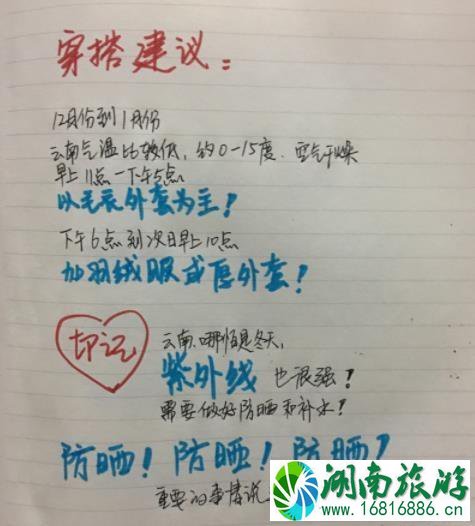 穿搭建议:
12月份到1月份
云南气温比较低,约0-15度.空气干燥
早上11点-下午5点
以毛衣外套为主!
下午6点到次日早上10点
加羽绒服或厚外套!
切记
云南哪怕是冬天,
紫外线也很强!
需要做好防晒和补水!
防晒!防晒!防晒!
重要的事情说
湖南旅游
www.16816886.cn